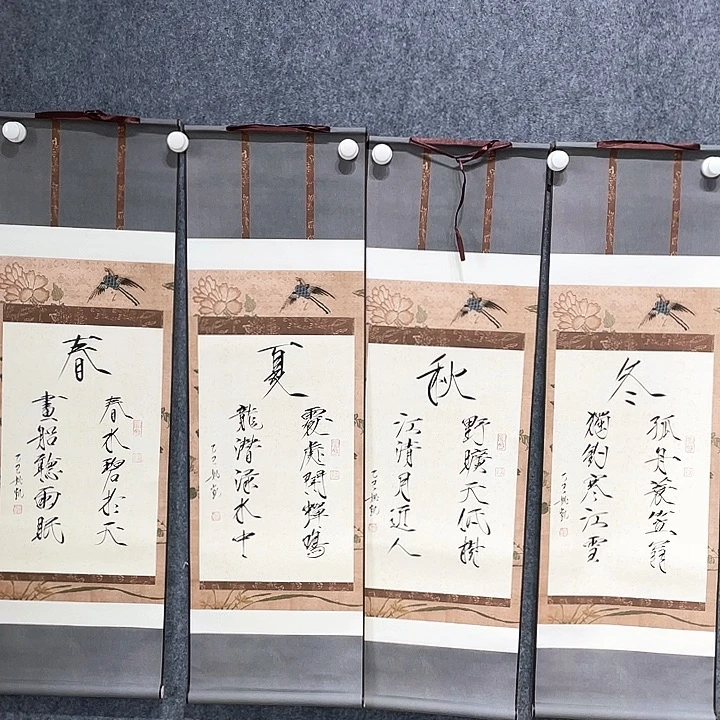 春
春水碧於天
畫船聽雨眠
乙巳
夏
處聞蟬鳴
龍潛水中
乙巳
秋
野曠天低樹
江清月近人
乙巳
冬
孤舟蓑笠翁
獨釣寒江雪
乙巳